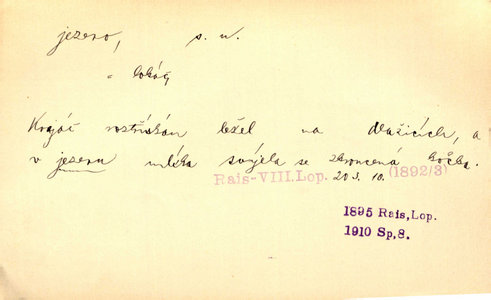 jezero, s. n.
„ lokál
Krajáč roztřískán ležel na dlažicích, a
v jezeru mléka svíjela se zkroucená kočka.
Rais-VIII.Lop. 203. 10. (1892/3)
1895 Rais,Lop.
1910 Sp,8.